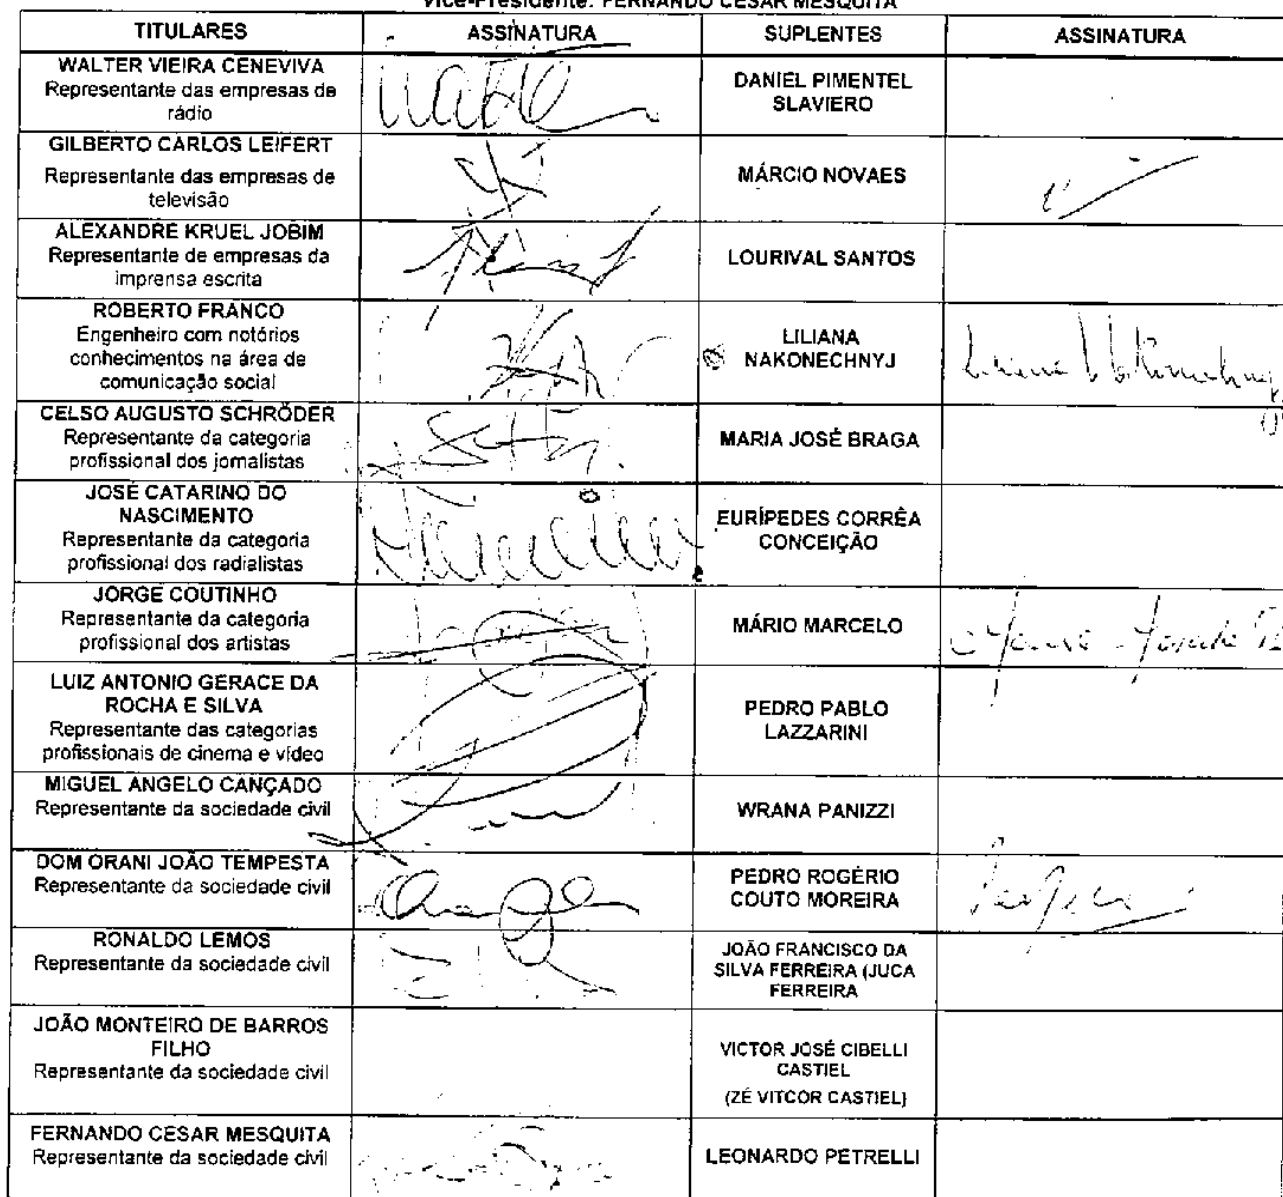 Vice-Presidente: FERNANDO CESAR MESQUITA
TITULARES ASSINATURA SUPLENTES ASSINATURA
WALTER VIEIRA CENEVIVA
Representante das empresas de
rádio
DANIEL PIMENTEL
SLAVIERO
GILBERTO CARLOS LEIFERT
Representante das empresas de
televisão
MÁRCIO NOVAES
ALEXANDRE KRUEL JOBIM
Representante de empresas da
imprensa escrita
LOURIVAL SANTOS
ROBERTO FRANCO
Engenheiro com notórios
conhecimentos na área de
comunicação social
LILIANA
NAKONECHNYJ
CELSO AUGUSTO SCHRÖDER
Representante da categoria
profissional dos jornalistas
MARIA JOSÉ BRAGA
JOSÉ CATARINO DO
NASCIMENTO
Representante da categoria
profissional dos radialistas
EURÍPEDES CORRÊA
CONCEIÇÃO
JORGE COUTINHO
Representante da categoria
profissional dos artistas
MÁRIO MARCELO
LUIZ ANTONIO GERACE DA
ROCHA E SILVA
Representante das categorias
profissionais de cinema e vídeo
PEDRO PABLO
LAZZARINI
MIGUEL ANGELO CANÇADO
Representante da sociedade civil
WRANA PANIZZI
DOM ORANI JOÃO TEMPESTA
Representante da sociedade civil
PEDRO ROGÉRIO
COUTO MOREIRA
RONALDO LEMOS
Representante da sociedade civil
JOÃO FRANCISCO DA
SILVA FERREIRA (JUCA
FERREIRA
JOÃO MONTEIRO DE BARROS
FILHO
Representante da sociedade civil
VICTOR JOSÉ CIBELLI
CASTIEL
(ZÉ VITCOR CASTIEL)
FERNANDO CESAR MESQUITA
Representante da sociedade civil
LEONARDO PETRELLI